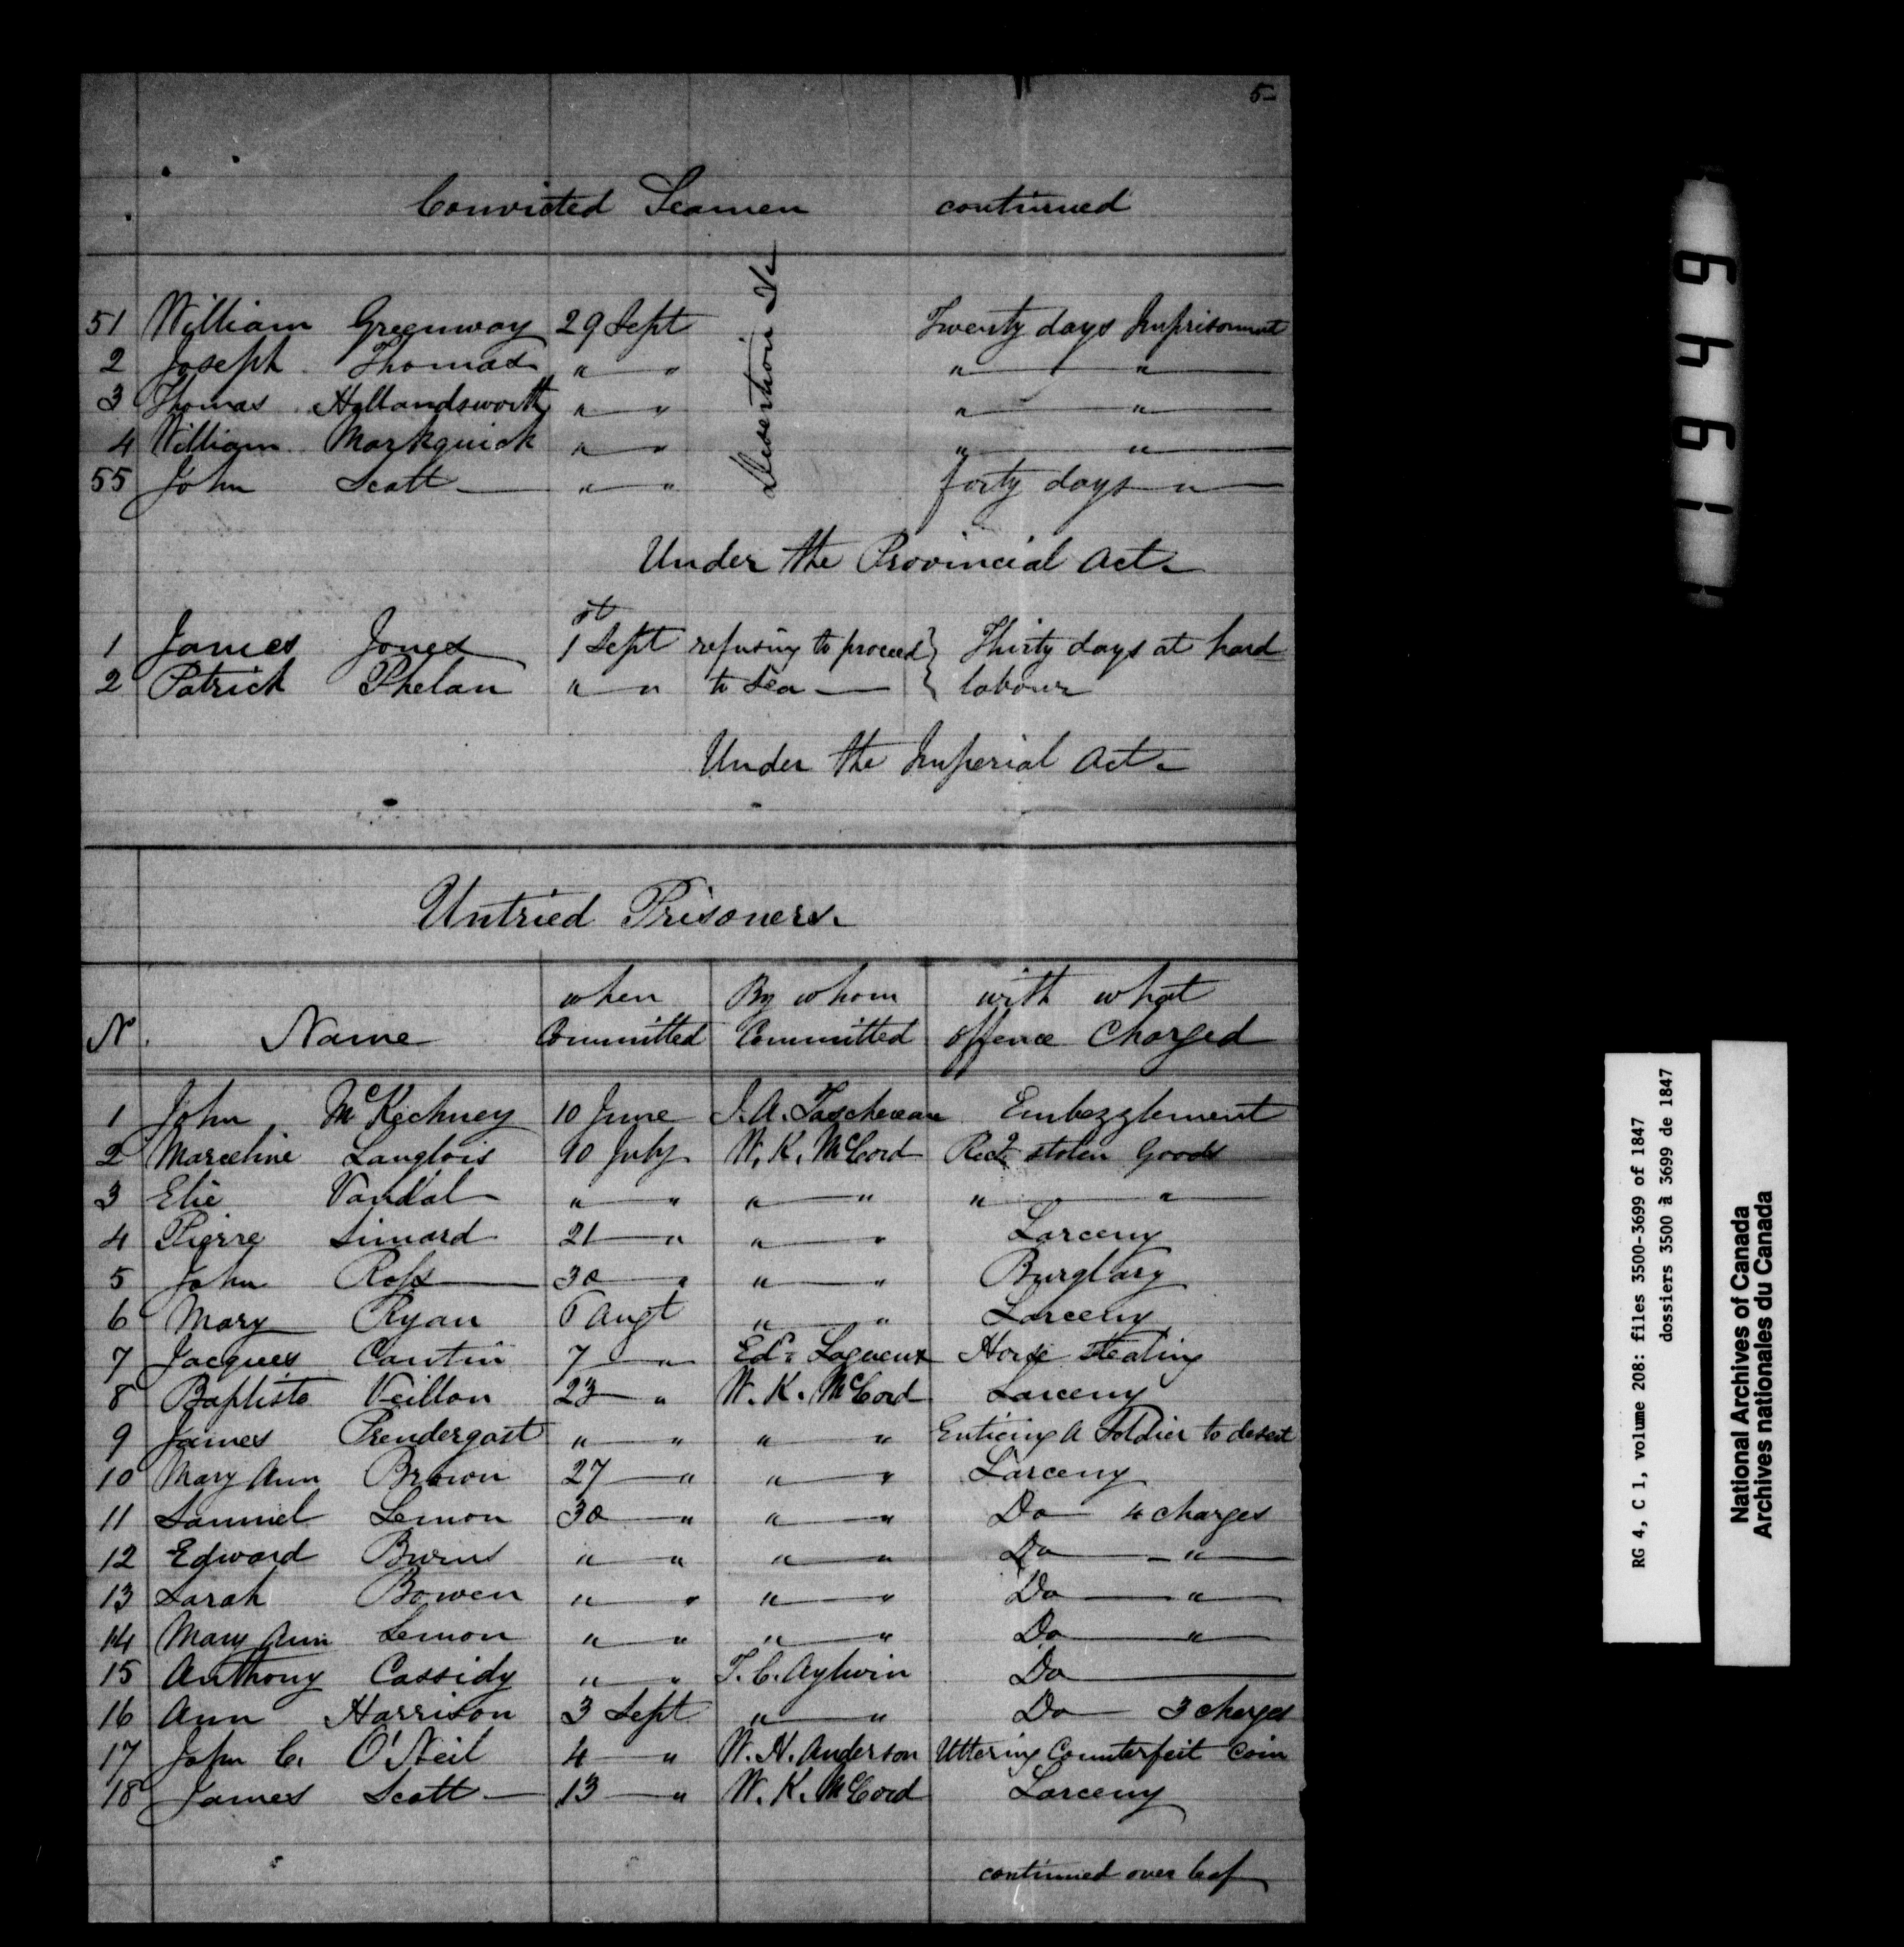 5
Convicted Seamen continued
51 William Greenway 29 Sept Desertion &c Twenty days Imprisonment
2 Joseph Thomas " " " "
3 Thomas Hollandsworth " " " "
4 William Markquick " " " "
55 John Scott " " forty days "
Under the Provincial Act
1 James Jones 1st Sept refusing to proceed } Thirty days at hard
2 Patrick Phelan " " to Sea } labour
Under the Imperial Act
Untried Prisoners
when By whom with what
N. Name Committed Committed offence Charged
1 John McKechney 10 June J. A. Taschereau Embezzlement
2 Marceline Langlois 10 July W. K. McCord Recg stolen Goods
3 Elie Vandal " " " " " "
4 Pierre Simard 21 " " " Larceny
5 John Ross 30 " " " Burglary
6 Mary Ryan 6 Augt " " Larceny
7 Jacques Cantin 7 " Ed: Lagueux Horse Stealing
8 Baptiste Veillon 23 " W. K. McCord Larceny
9 James Prendergast " " " " Enticing A Soldier to desert
10 Mary Ann Brown 27 " " " Larceny
11 Samuel Lemon 30 " " " Do 4 charges
12 Edward Burns " " " " Do "
13 Sarah Bowen " " " " Do "
14 Mary Ann Lemon " " " " Do "
15 Anthony Cassidy " " T. C. Aylwin Do
16 Ann Harrison 3 Sept " " Do 3 charges
17 John C. O'Neil 4 " W. H. Anderson Uttering Counterfeit Coin
18 James Scott 13 " W. K. McCord Larceny
continued over leaf
16649
RG 4, C 1, volume 208: files 3500-3699 of 1847
dossiers 3500 à 3699 de 1847
National Archives of Canada
Archives nationales du Canada